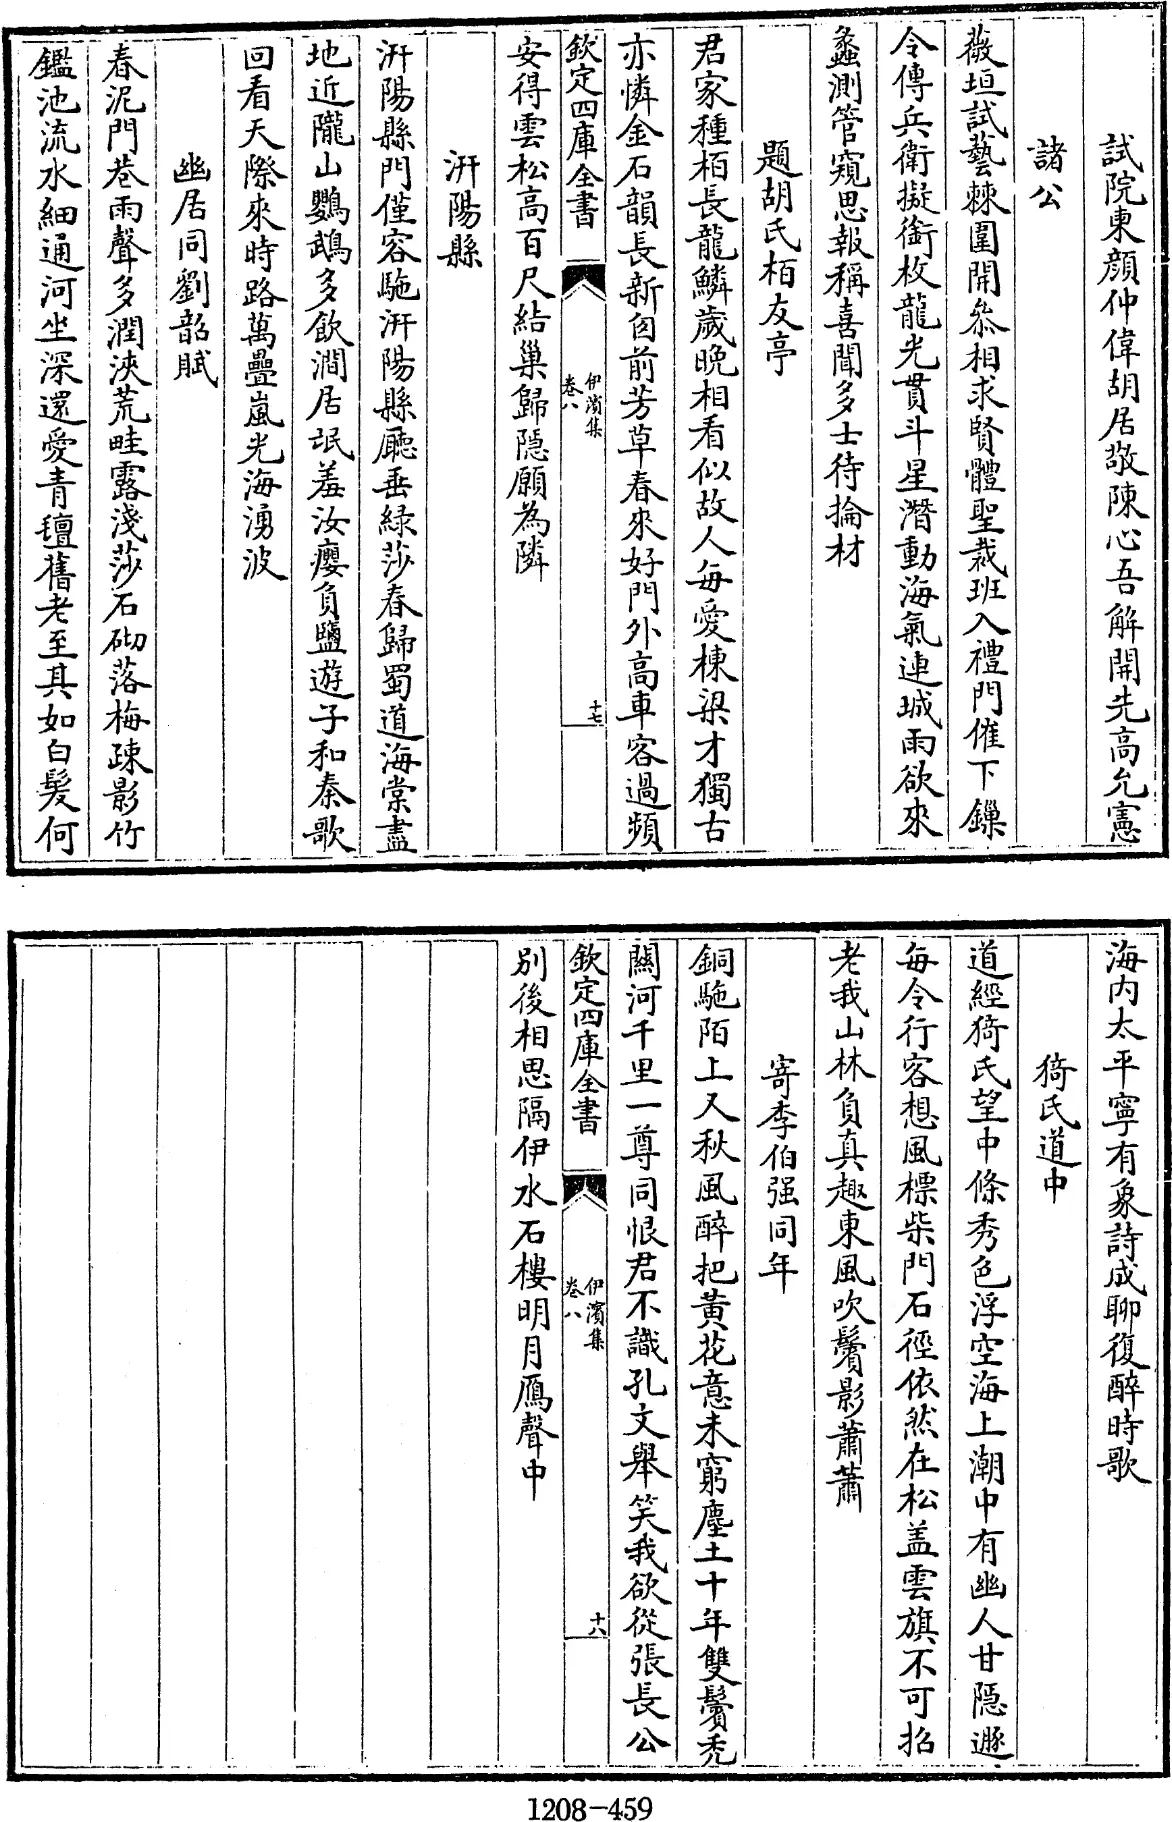 試院東顔仲偉胡居敬陳心吾解開先高允憲
諸公
薇垣試藝棘圍開叅相求賢體聖裁班入禮門催下鏁
令傳兵衛擬銜枚龍光貫斗星潛動海氣連城雨欲來
蠡測管窺思報稱喜聞多士待掄材
題胡氏栢友亭
君家種栢長龍鱗歲晚相看似故人每愛棟梁才獨古
亦憐金石韻長新囱前芳草春來好門外高車客過頻
欽定四庫全書
伊濱集
卷八
十七
安得雲松高百尺結巢歸隠願為隣
汧陽縣
汧陽縣門僅容駞汧陽縣廳垂緑莎春歸蜀道海棠盡
地近隴山鸚鵡多飲澗居氓羞汝癭負鹽遊子和秦歌
回看天際來時路萬疊嵐光海湧波
幽居同劉韶賦
春泥門巷雨聲多潤浹荒畦露淺莎石砌落梅疎影竹
鑑池流水細通河坐深還愛青氊舊老至其如白髪何
海内太平寧有象詩成聊復醉時歌
猗氏道中
道經猗氏望中條秀色浮空海上潮中有幽人甘隠遯
每令行客想風標柴門石徑依然在松盖雲旗不可招
老我山林負真趣東風吹鬢影蕭蕭
寄李伯强同年
銅駞陌上又秋風醉把黄花意未窮塵土十年雙鬢秃
關河千里一尊同恨君不識孔文舉笑我欲從張長公
欽定四庫全書
伊濱集
卷八
十八
別後相思隔伊水石樓明月鴈聲中
1208-459